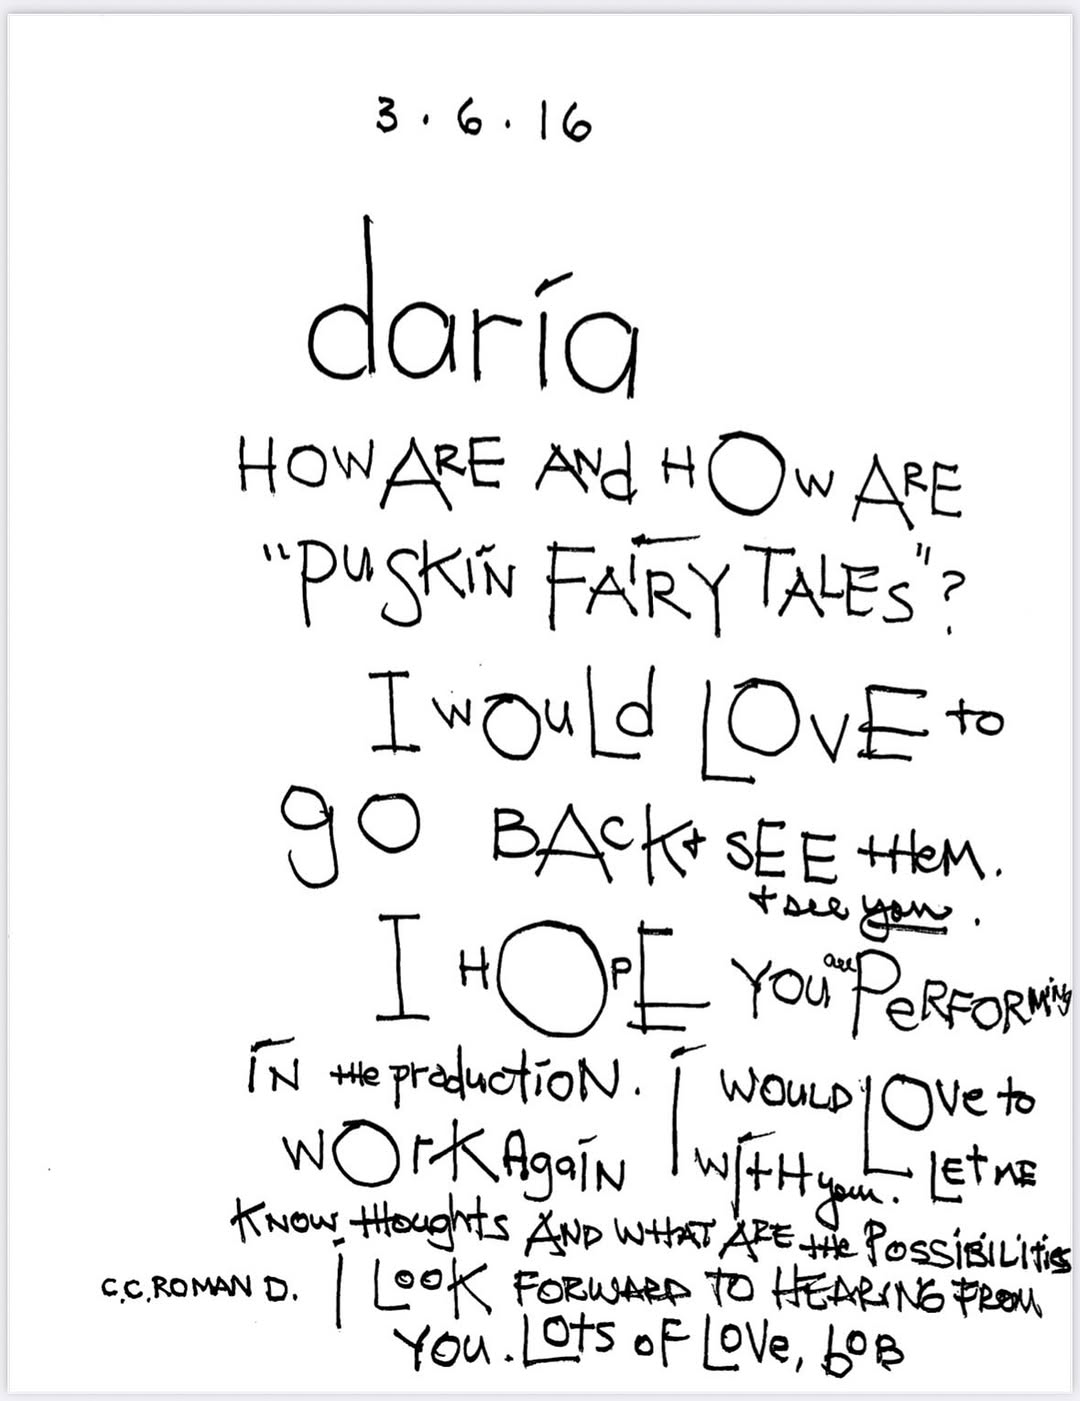 3.6.16
daría
HOW ARE ANd HOW ARE
"PuSKiN FAiRY TALES"?
I wOuLd LOvE to
go BACK + SEE tHeM.
+ see you.
I HOPE YOU are PeRFORMing
iN tHe productioN. I WOULD LOVe to
WOrK AgaiN WitH you. LEt ME
KNOW tHougHts AND WHAT ARE tHe POSSiBiLities
C.C. ROMAN D. I LOOK FORWARD TO HEARING FROM
YOU. LOtS OF LOVe, boB